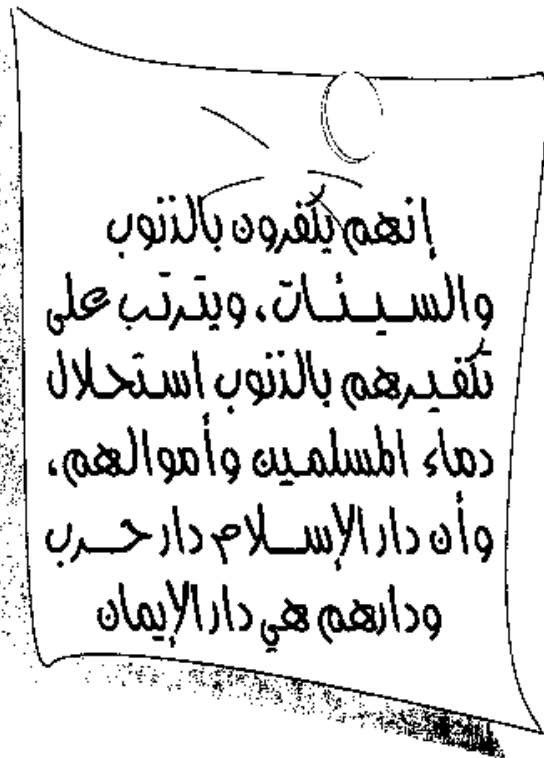 إنهم يكفرون بالذنوب
والسيئات، ويترتب على
تكفيرهم بالذنوب استحلال
دماء المسلمين وأموالهم،
وأن دار الإسلام دار حرب
ودارهم هي دار الإيمان